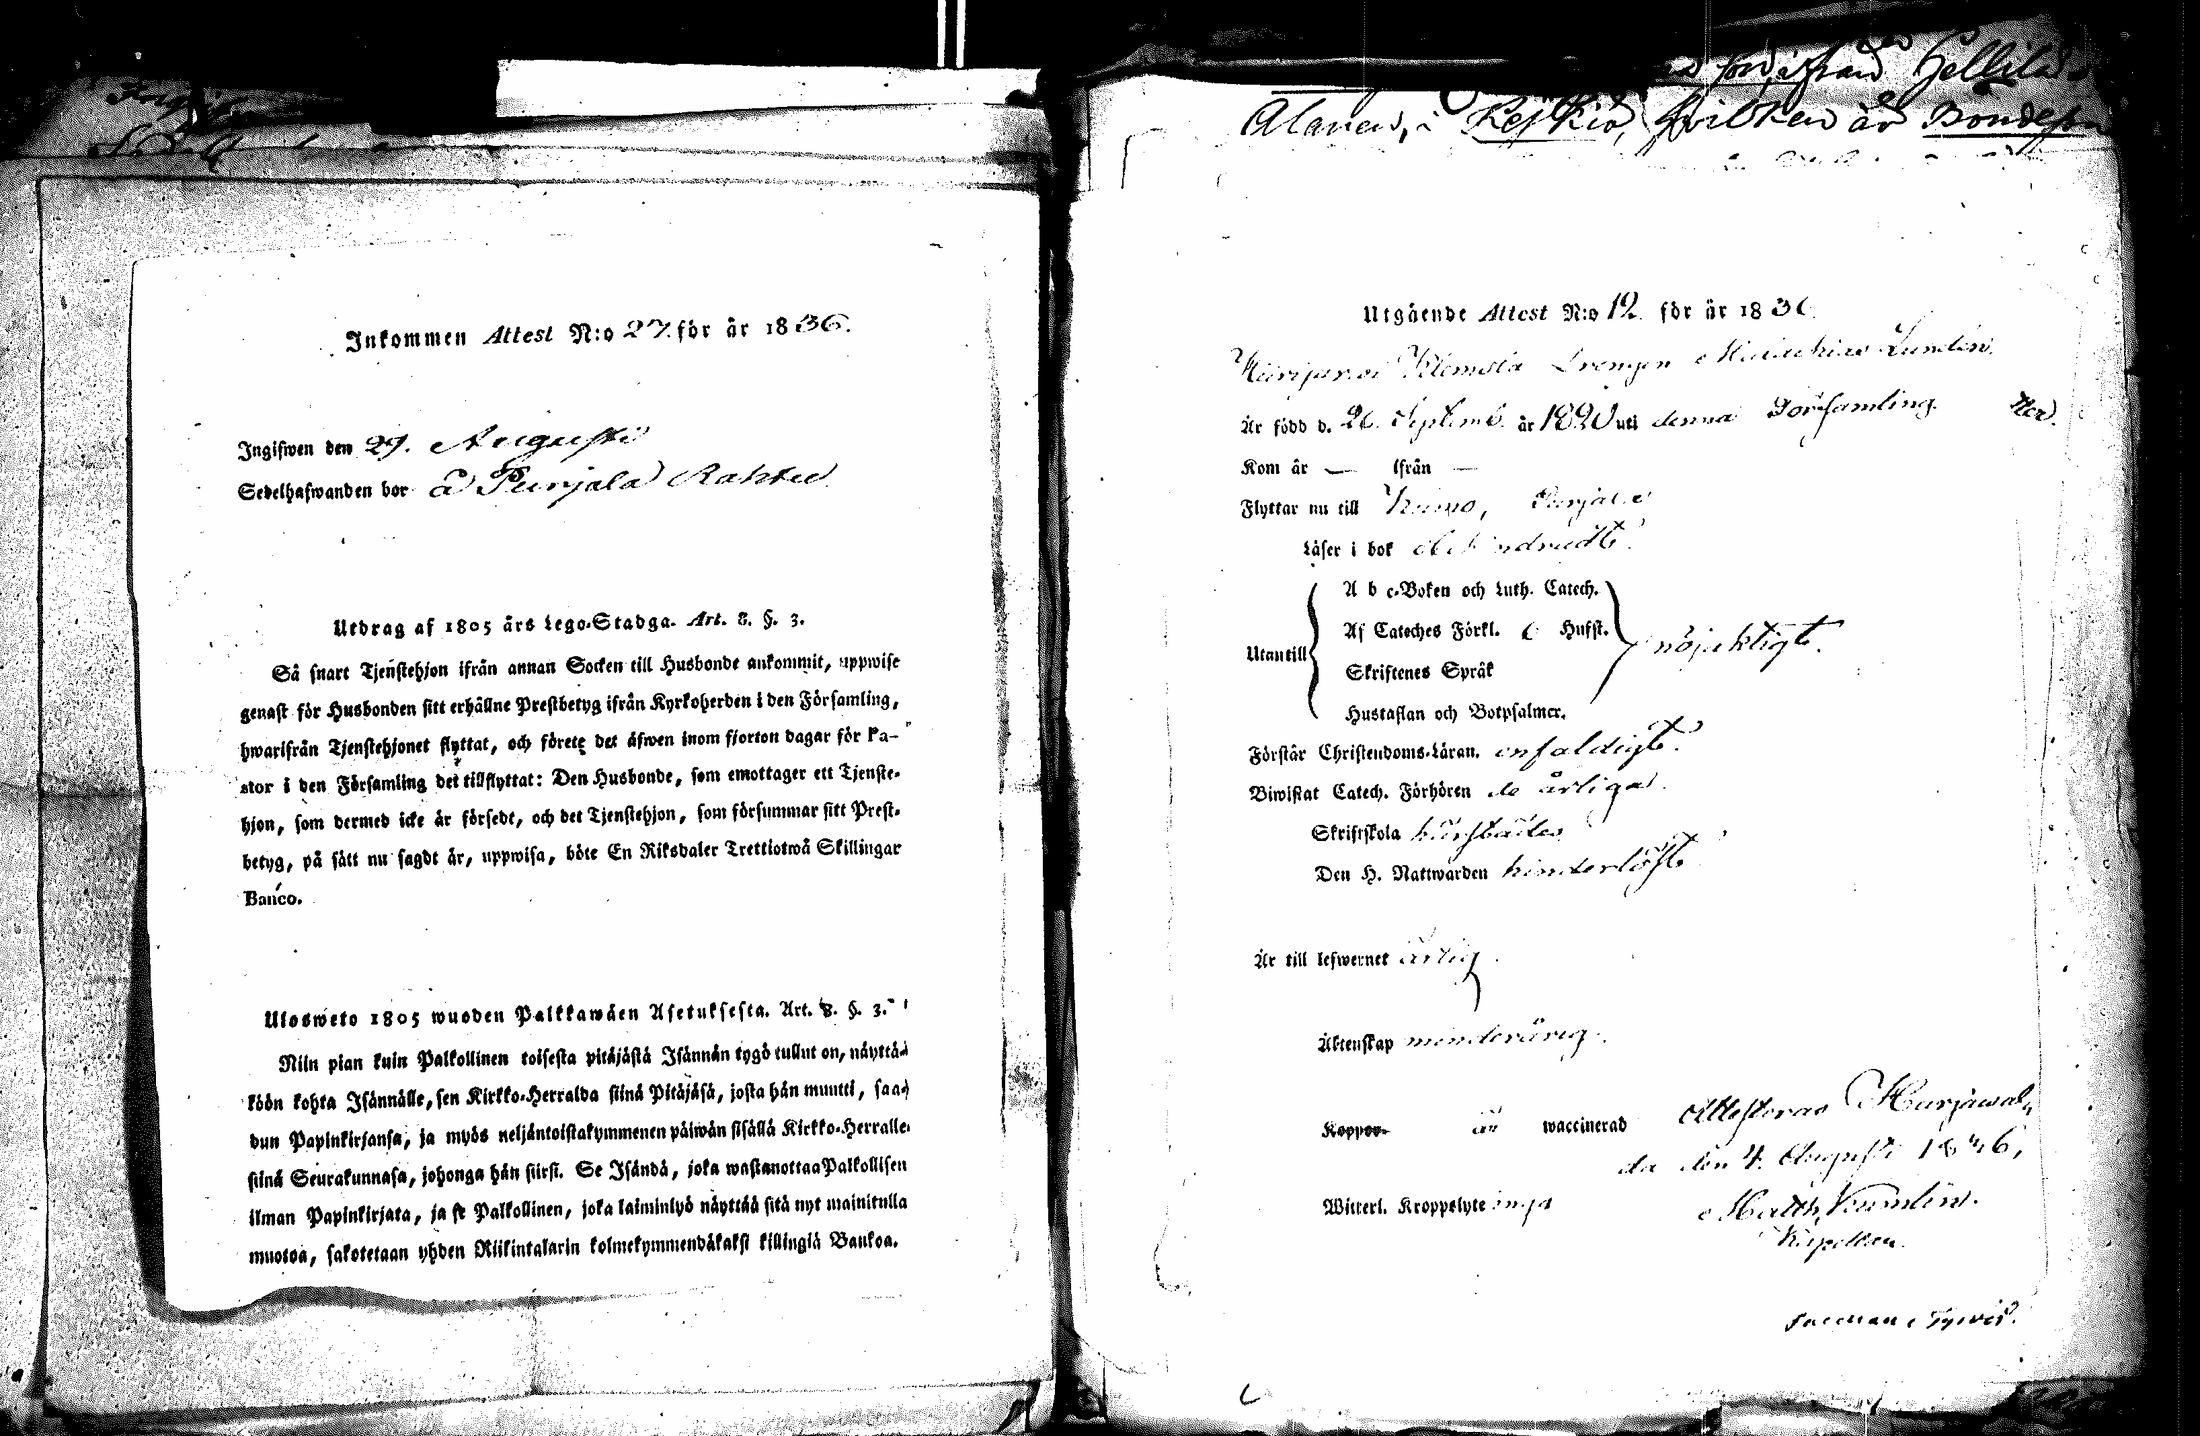 Inkommen Attest N:o 27. för år 1836.
Ingifwen den 29. Augusti
Sedelhafwanden bor å Purjala Rahtu
Utdrag af 1805 års Lego-Stadga. Art. 8. §. 3.
Så snart Tjenstehjon ifrån annan Socken till Husbonde ankommit, uppwise
genast för Husbonden sitt erhållne Prestbetyg ifrån Kyrkoherden i den Församling,
hwarifrån Tjenstehjonet flyttat, och förete det äfwen inom fjorton dagar för Pa-
stor i den Församling det tillflyttat: Den Husbonde, som emottager ett Tjenste-
hjon, som dermed icke är försedt, och det Tjenstehjon, som försummar sitt Prest-
betyg, på sätt nu sagdt är, uppwisa, böte En Riksdaler Trettiotwå Skillingar
Banco.
Ulosweto 1805 wuoden Palkkawäen Asetuksesta. Art. 8. §. 3.
Niin pian kuin Palkollinen toisesta pitäjästä Isännän tygö tullut on, näyttä-
köön kohta Isännälle, sen Kirkko-Herralda siinä Pitäjäsä, josta hän muutti, saa-
dun Papinkirjansa, ja myös neljäntoistakymmenen päiwän sisällä Kirkko-Herralle
siinä Seurakunnasa, johonga hän siirsi. Se Isändä, joka wastanottaa Palkollisen
ilman Papinkirjata, ja se Palkollinen, joka laiminlyö näyttää sitä nyt mainitulla
muotoa, sakotetaan yhden Riikintalarin kolmekymmendäkaksi killingiä Bankoa.
ifrån Hellilä
Alanen, i Keikiö, hvilken är Bondeson
Utgående Attest N:o 12. för år 1836
Drengen Lundén.
Är född d. 26. Septemb. år 1820 uti denna Församling.
Kom år — ifrån —
Flyttar nu till Kumo, Purjala
Läser i bok
A b c-Boken och Luth. Catech.
Af Cateches Förkl. 6 Hufst.
Utantill nöjaktigt.
Skriftenes Språk
Hustaflan och Botpsalmer.
Förstår Christendoms-Läran. enfaldigt.
Biwistat Catech. Förhören de årliga.
Skriftskola
Den H. Nattwarden hinderlöst
Är till lefwernet ärlig.
Äktenskap minderårig.
Koppor är waccinerad Attesteras Harjaval-
da den 4. Augusti 1836,
Witterl. Kroppslyte inga
Kapellan.